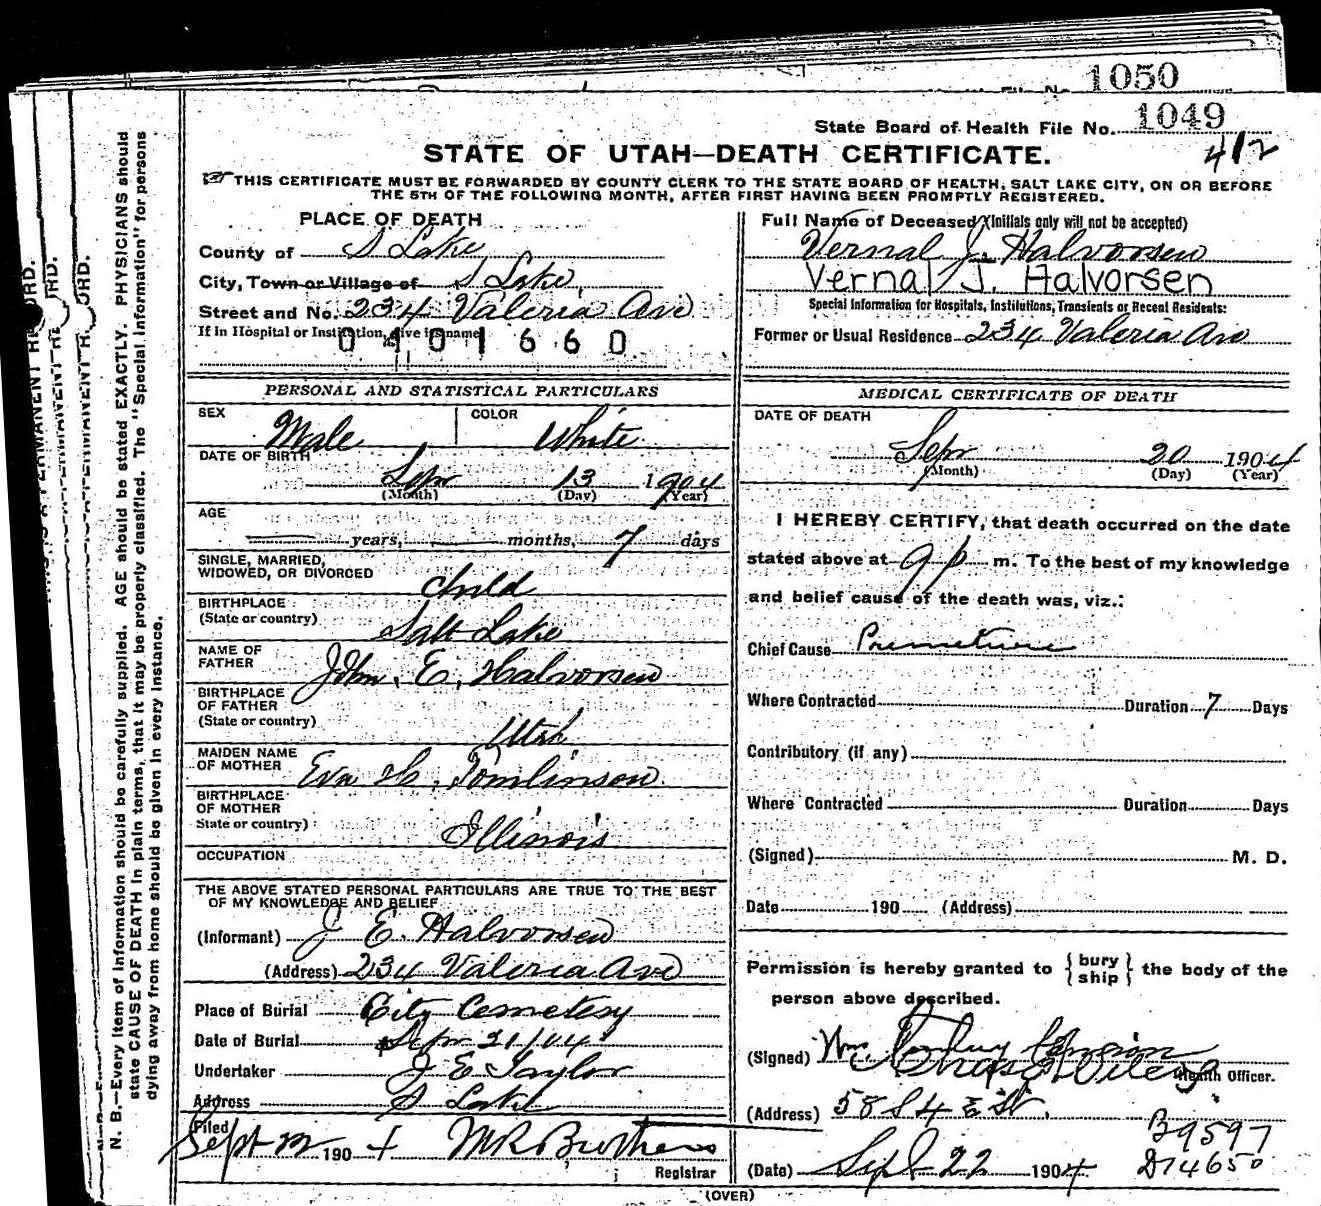 1050
State Board of Health File No. 1049
412
STATE OF UTAH—DEATH CERTIFICATE.
THIS CERTIFICATE MUST BE FORWARDED BY COUNTY CLERK TO THE STATE BOARD OF HEALTH, SALT LAKE CITY, ON OR BEFORE
THE 5TH OF THE FOLLOWING MONTH, AFTER FIRST HAVING BEEN PROMPTLY REGISTERED.
N. B.—Every item of information should be carefully supplied. AGE should be stated EXACTLY. PHYSICIANS should
state CAUSE OF DEATH in plain terms, that it may be properly classified. The "Special Information" for persons
dying away from home should be given in every instance.
PLACE OF DEATH
County of S Lake
City, Town or Village of S Lake
Street and No. 234 Valeria Ave
If in Hospital or Institution, give its name
0401660
Full Name of Deceased (Initials only will not be accepted)
Vernal J. Halvorsen
Vernal J. Halvorsen
Special Information for Hospitals, Institutions, Transients or Recent Residents:
Former or Usual Residence 234 Valeria Ave
PERSONAL AND STATISTICAL PARTICULARS
SEX Male
COLOR White
DATE OF BIRTH
Sepr 13 1904
(Month) (Day) (Year)
AGE
years, months, 7 days
SINGLE, MARRIED,
WIDOWED, OR DIVORCED child
BIRTHPLACE
(State or country) Salt Lake
NAME OF
FATHER John. E. Halvorsen
BIRTHPLACE
OF FATHER
(State or country) Utah
MAIDEN NAME
OF MOTHER Eva H. Tomlinson
BIRTHPLACE
OF MOTHER
State or country) Illinois
OCCUPATION
THE ABOVE STATED PERSONAL PARTICULARS ARE TRUE TO THE BEST
OF MY KNOWLEDGE AND BELIEF
(Informant) J E. Halvorsen
(Address) 234 Valeria Ave
Place of Burial City Cemetery
Date of Burial Sepr 21/04
Undertaker J E Taylor
Address S Lake
Filed
Sept 22 1904 M R Brothers
Registrar
MEDICAL CERTIFICATE OF DEATH
DATE OF DEATH
Sepr 20 1904
(Month) (Day) (Year)
I HEREBY CERTIFY, that death occurred on the date
stated above at 9 p m. To the best of my knowledge
and belief cause of the death was, viz.:
Chief Cause Premature
Where Contracted Duration 7 Days
Contributory (if any)
Where Contracted Duration Days
(Signed) M. D.
Date 190 (Address)
Permission is hereby granted to { bury ship } the body of the
person above described.
(Signed) Wm.
Health Officer.
(Address) 58 S 4 E St.
B9597
D14650
(Date) Sept 22 1904
(OVER)